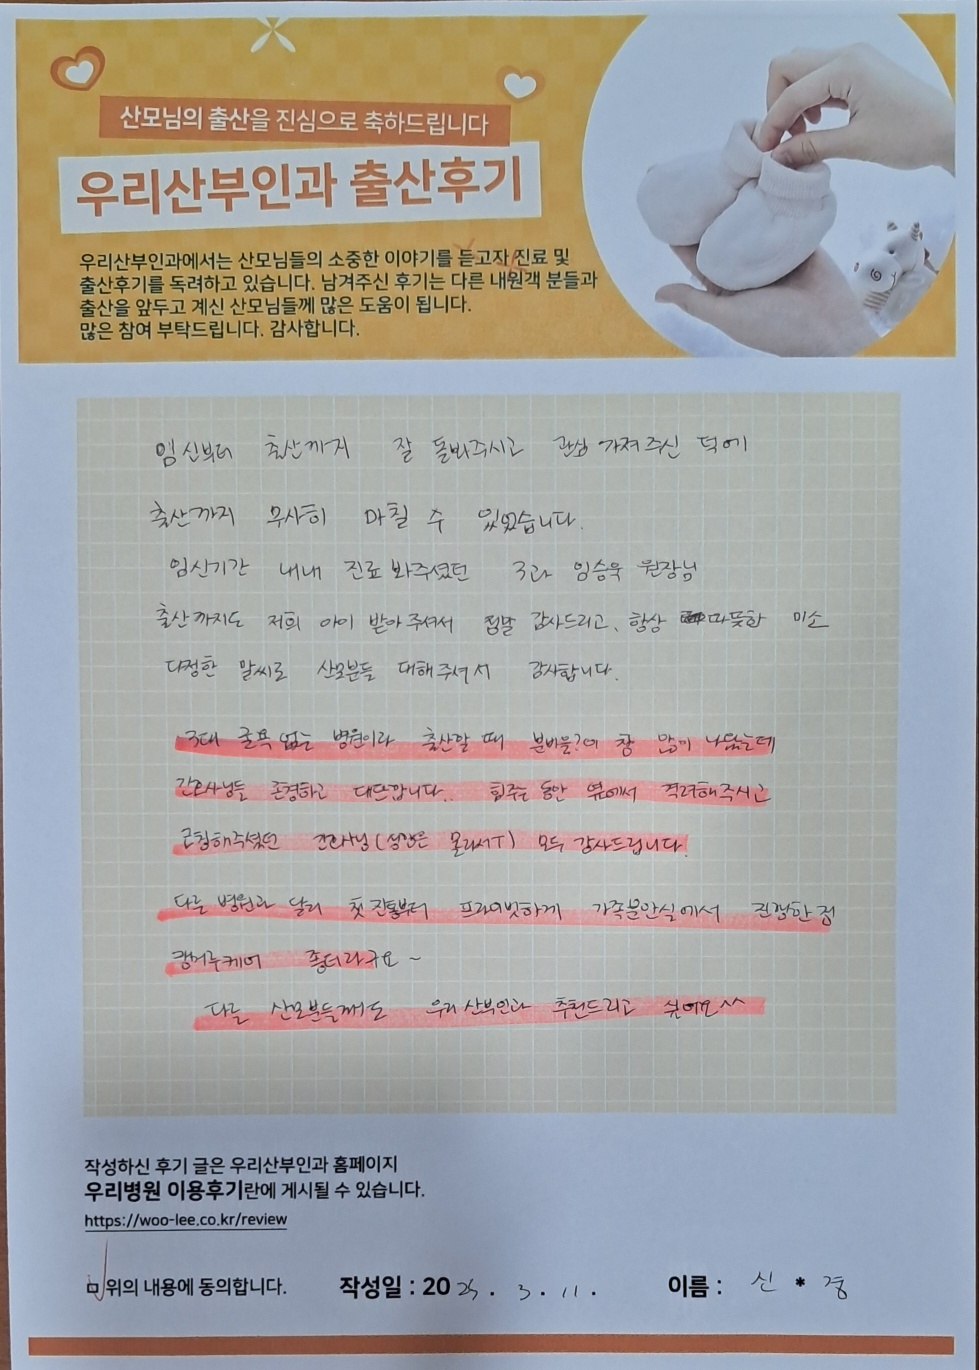 산모님의 출산을 진심으로 축하드립니다
우리산부인과 출산후기
우리산부인과에서는 산모님들의 소중한 이야기를 듣고자 진료 및
출산후기를 독려하고 있습니다. 남겨주신 후기는 다른 내원객 분들과
출산을 앞두고 계신 산모님들께 많은 도움이 됩니다.
많은 참여 부탁드립니다. 감사합니다.
임신부터 출산까지 잘 돌봐주시고 관심 가져주신 덕에
출산까지 무사히 마칠 수 있었습니다.
임신기간 내내 진료 봐주셨던 3과 임승욱 원장님
출산까지도 저희 아이 받아주셔서 정말 감사드리고, 항상 따뜻한 미소
다정한 말씨로 산모분들 대해주셔서 감사합니다.
3대 굴욕 없는 병원이라 출산할 때 분비물?이 참 많이 나왔는데
간호사님들 존경하고 대단합니다.. 힘주는 동안 옆에서 격려해주시고
코칭해주셨던 간호사님(성함은 몰라서T) 모두 감사드립니다.
다른 병원과 달리 첫 진통부터 프라이빗하게 가족분만실에서 진행한 점
캥거루케어 좋더라구요~
다른 산모분들께도 우리산부인과 추천드리고 싶어요^^
작성하신 후기 글은 우리산부인과 홈페이지
우리병원 이용후기란에 게시될 수 있습니다.
https://woo-lee.co.kr/review
위의 내용에 동의합니다. 작성일 : 2025. 3. 11. 이름 : 신 * 경